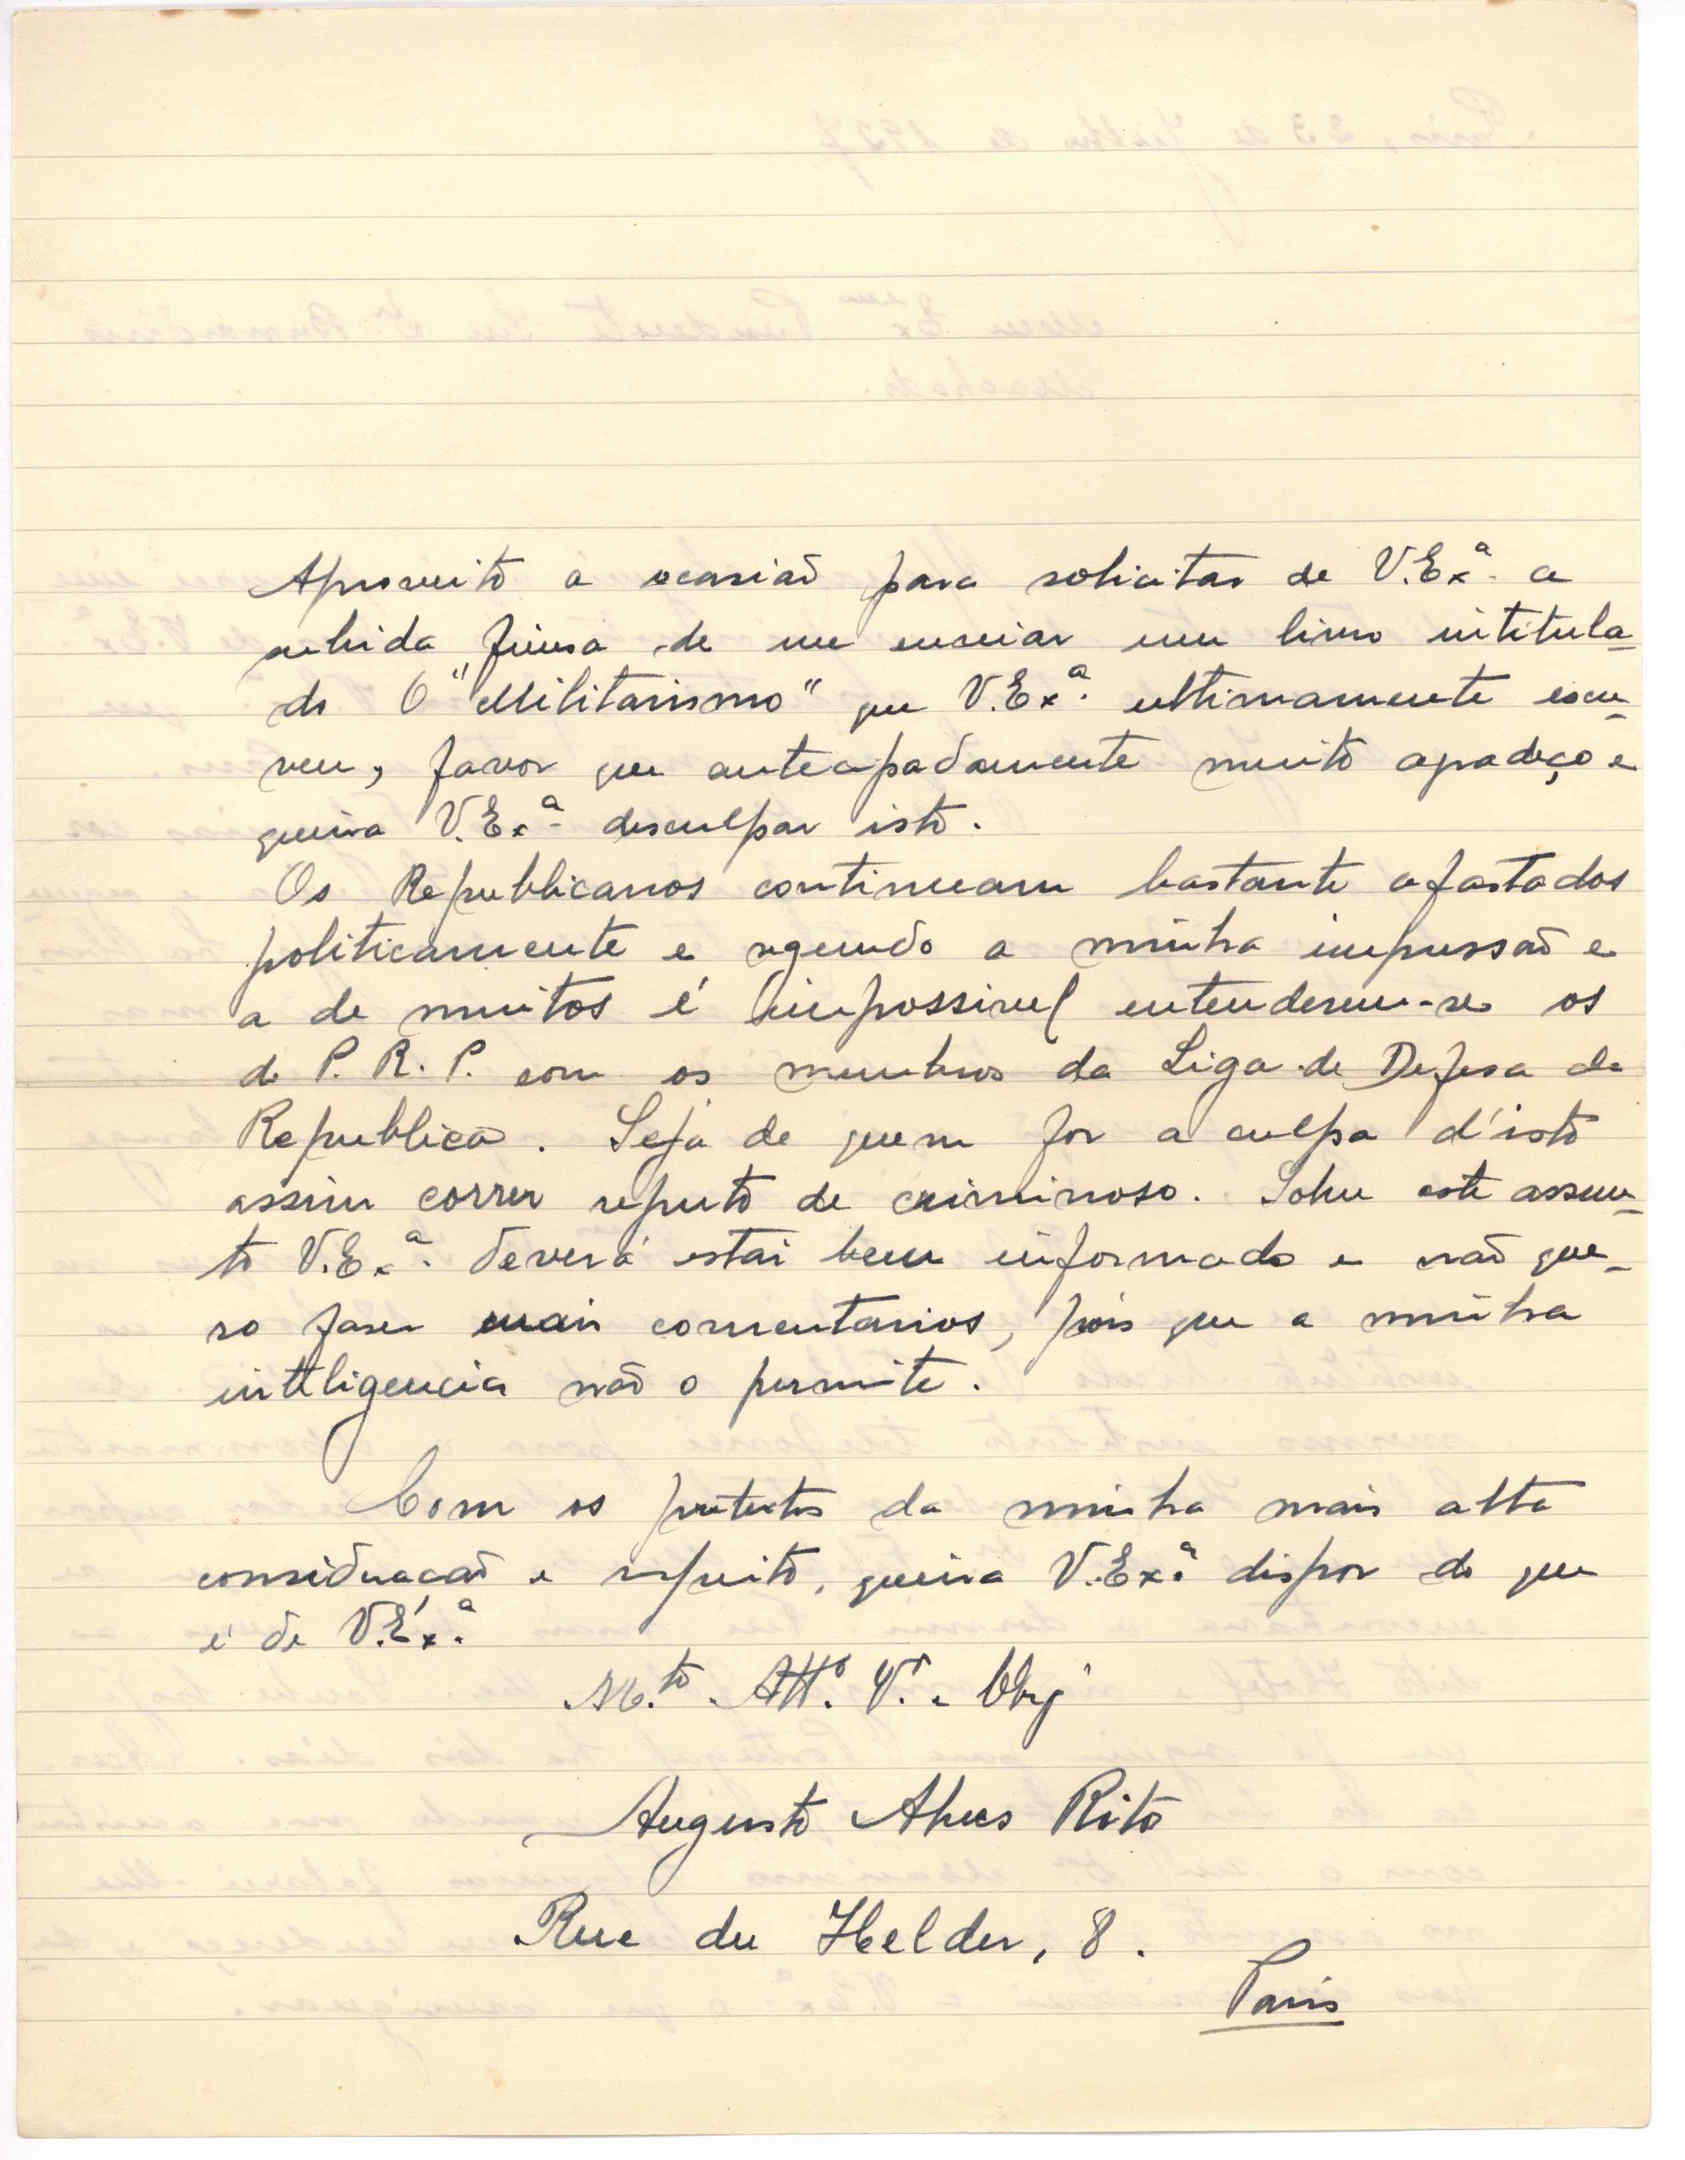 Aproveito a ocasiaõ para solicitar de V.Exª a
subida fineza de me enviar um livro intitula-
do O "Militarismo" que V.Exª ultimamente escre-
veu, favor que antecipadamente muito agradeço e
queira V.Exª desculpar isto.
Os Republicanos continuam bastante afastados
politicamente e segundo a minha impressaõ e
a de muitos é impossivel entenderem-se os
do P. R. P. com os membros da Liga de Defesa da
Republica. Seja de quem for a culpa d'isto
assim correr reputo de criminoso. Sobre este assum-
to V.Exª deverá estar bem informado e naõ que-
ro faser mais comentarios, pois que a minha
inteligencia naõ o permite.
Com os protestos da minha mais alta
consideracaõ e respeito, queira V.Exª dispor do que
é de V.Exª
M.to Att.º V.r e Obg
Augusto Alves Rito
Rue du Helder, 8.
Paris